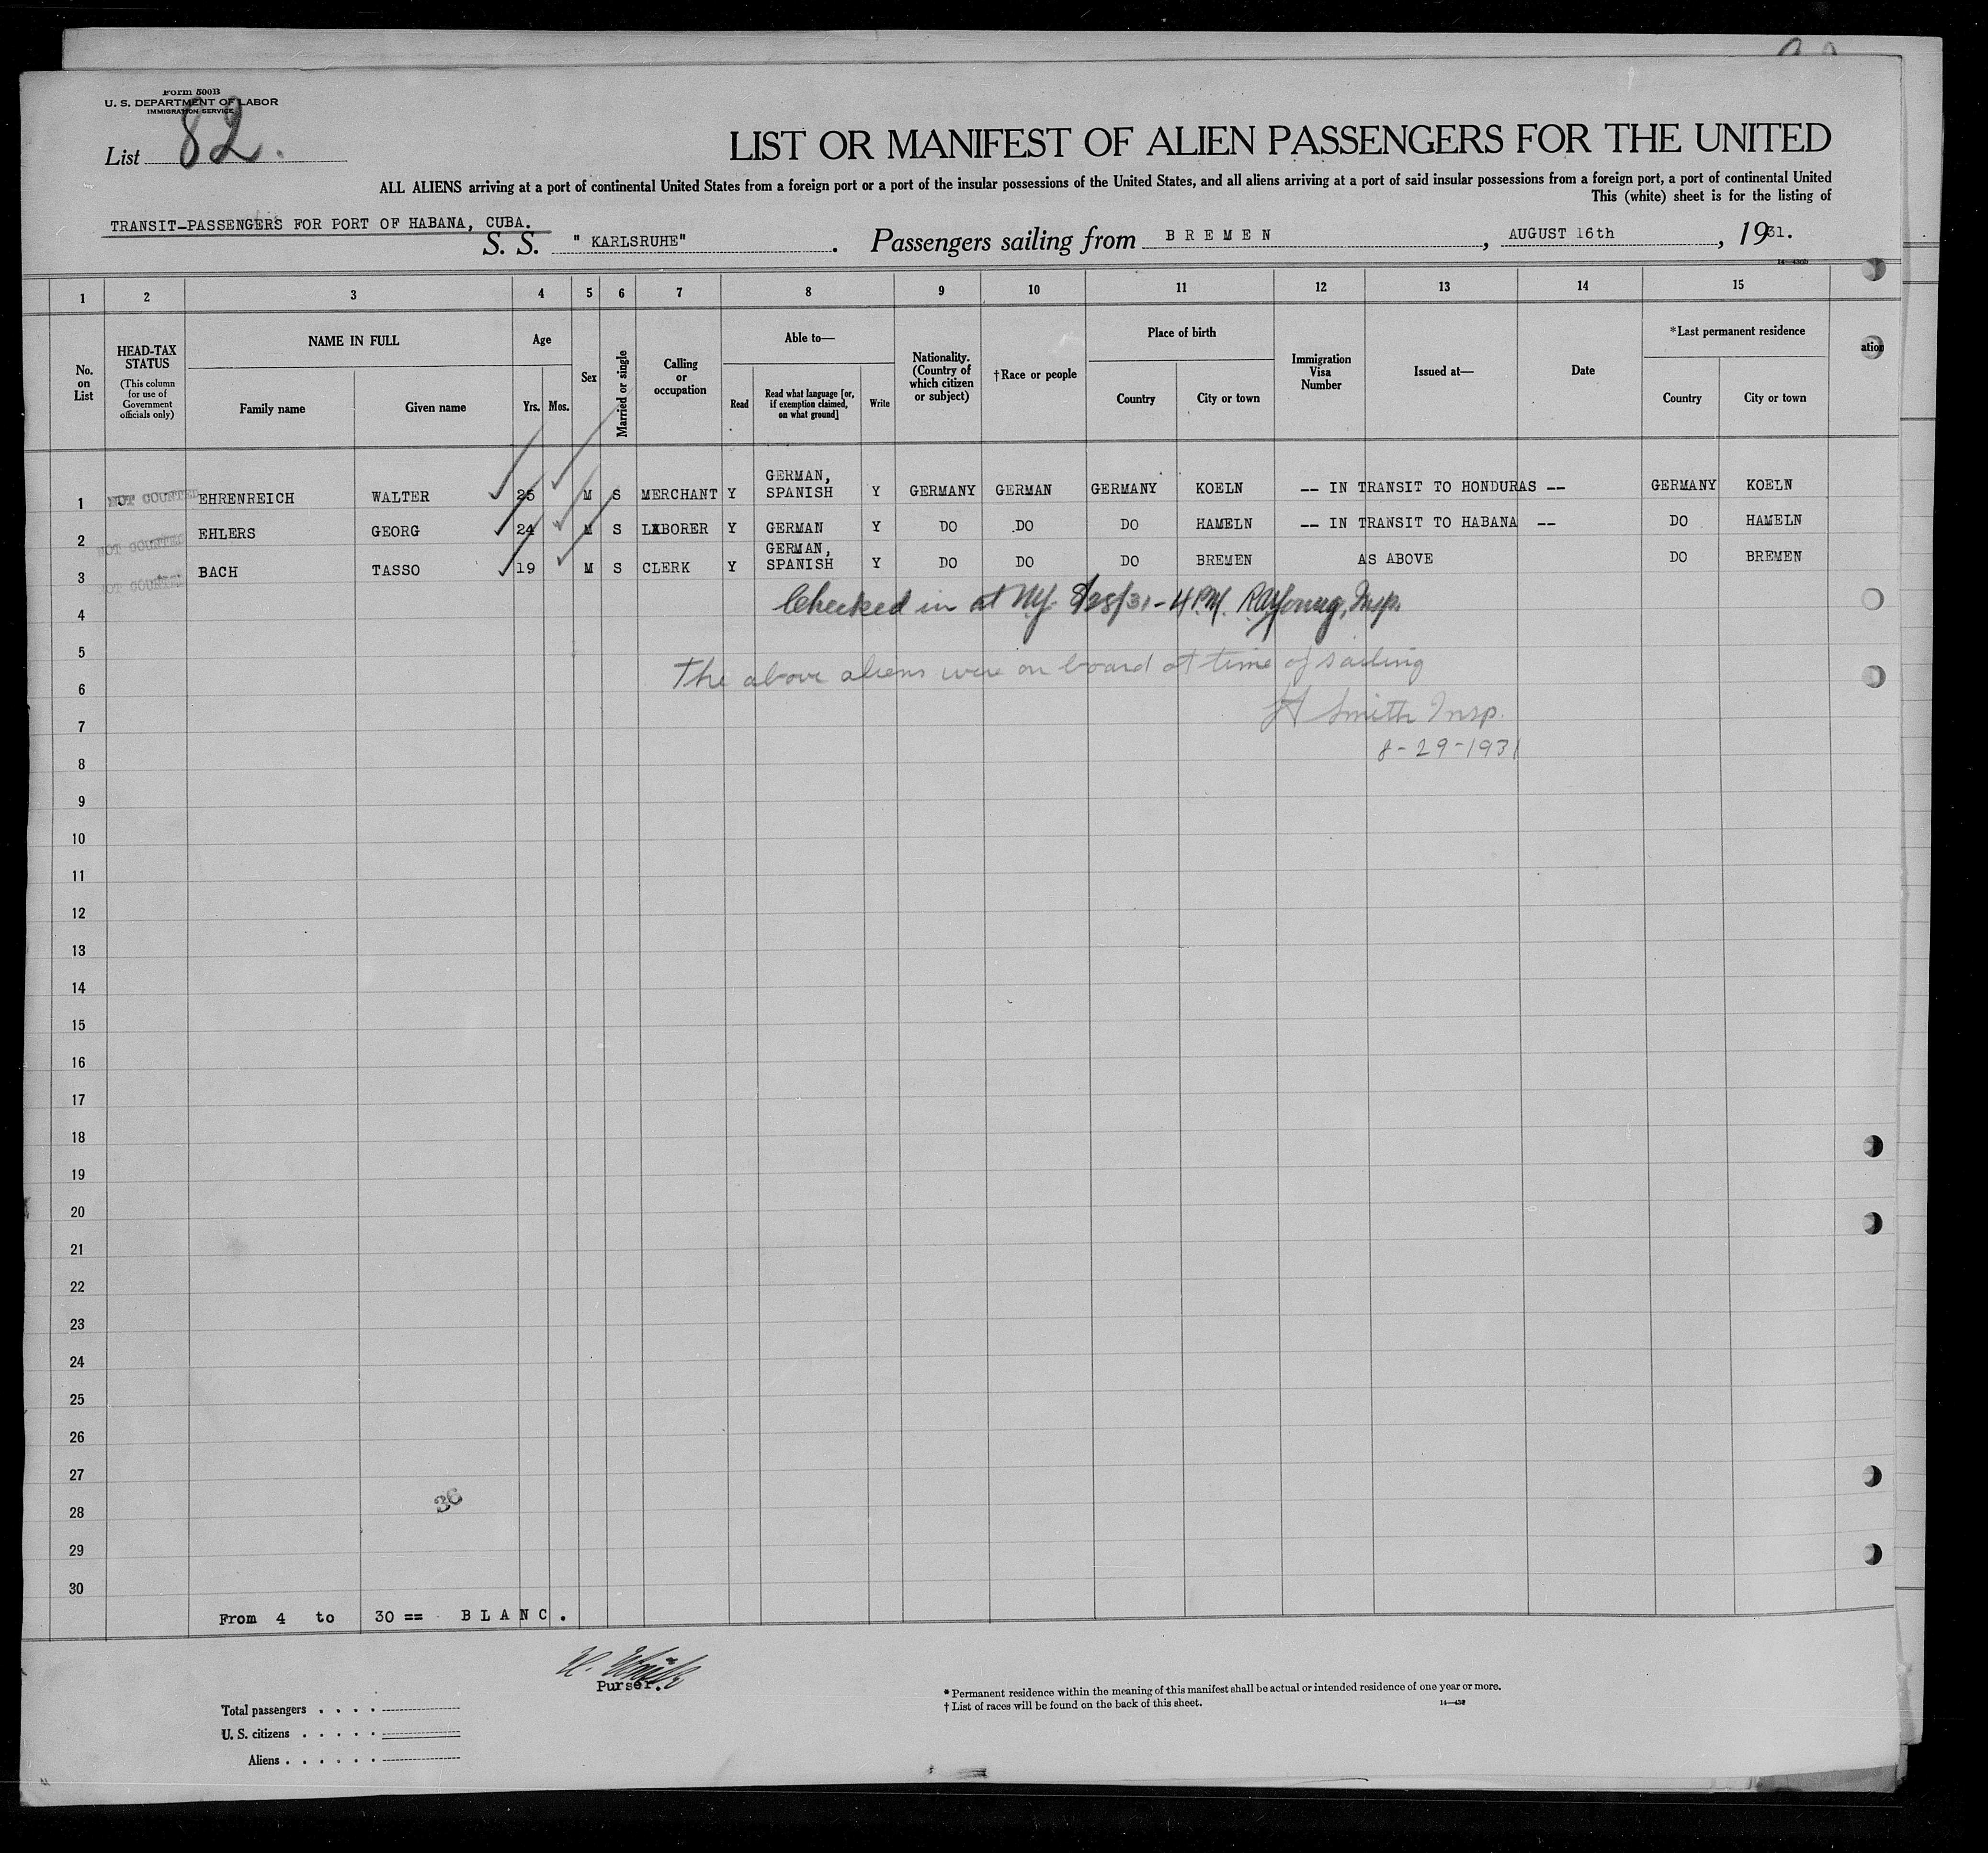 Form 500B
U. S. DEPARTMENT OF LABOR
IMMIGRATION SERVICE
List 82.
LIST OR MANIFEST OF ALIEN PASSENGERS FOR THE UNITED
ALL ALIENS arriving at a port of continental United States from a foreign port or a port of the insular possessions of the United States, and all aliens arriving at a port of said insular possessions from a foreign port, a port of continental United
This (white) sheet is for the listing of
TRANSIT-PASSENGERS FOR PORT OF HABANA, CUBA.
S. S. " KARLSRUHE" . Passengers sailing from B R E M E N , AUGUST 16th , 1931.
1 2 3 4 5 6 7 8 9 10 11 12 13 14 15
No. on List
HEAD-TAX STATUS
(This column for use of Government officials only)
NAME IN FULL
Family name Given name
Age
Yrs. Mos.
Sex
Married or single
Calling or occupation
Able to—
Read
Read what language [or, if exemption claimed, on what ground]
Write
Nationality. (Country of which citizen or subject)
†Race or people
Place of birth
Country City or town
Immigration Visa Number
Issued at—
Date
*Last permanent residence
Country City or town
1 NOT COUNTED EHRENREICH WALTER 25 M S MERCHANT Y GERMAN, SPANISH Y GERMANY GERMAN GERMANY KOELN -- IN TRANSIT TO HONDURAS -- GERMANY KOELN
2 NOT COUNTED EHLERS GEORG 24 M S LABORER Y GERMAN Y DO DO DO HAMELN -- IN TRANSIT TO HABANA -- DO HAMELN
3 NOT COUNTED BACH TASSO 19 M S CLERK Y GERMAN, SPANISH Y DO DO DO BREMEN AS ABOVE DO BREMEN
4 Checked in at N.Y. 8/28/31 - 4 P.M. R.A.Young, Insp.
5
6 The above aliens were on board at time of sailing
7 Smith Insp.
8 8-29-1931
9
10
11
12
13
14
15
16
17
18
19
20
21
22
23
24
25
26
27
28 36
29
30
From 4 to 30 == B L A N C .
Purser.
* Permanent residence within the meaning of this manifest shall be actual or intended residence of one year or more.
† List of races will be found on the back of this sheet.
Total passengers . . . .
U. S. citizens . . . . .
Aliens . . . . . .